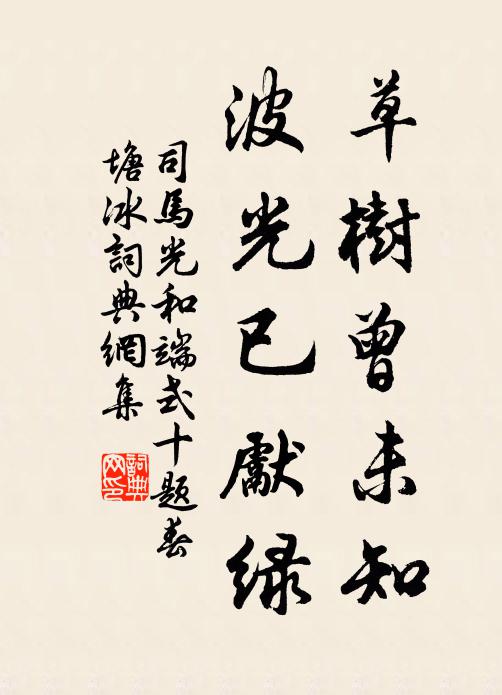 草樹曾未知
波光已獻緑
司馬光和端式十題春
塘冰詞典網集
詞典
网印